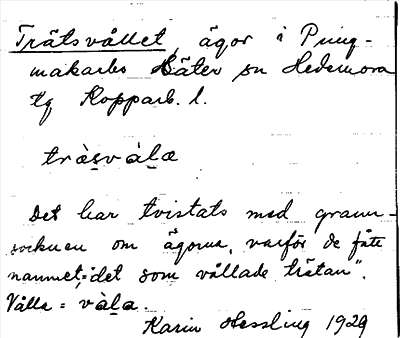 Trätsvållet, ägor i Pung-
makarbo Säter sn Hedemora
tg Kopparb. l.
trȁs̱vȁḻæ
Det har tvistats med grann-
socknen om ägorna, varför de fått
namnet, "det som vållade trätan".
Vålla = vȁḻa.
Karin Hessling 1929